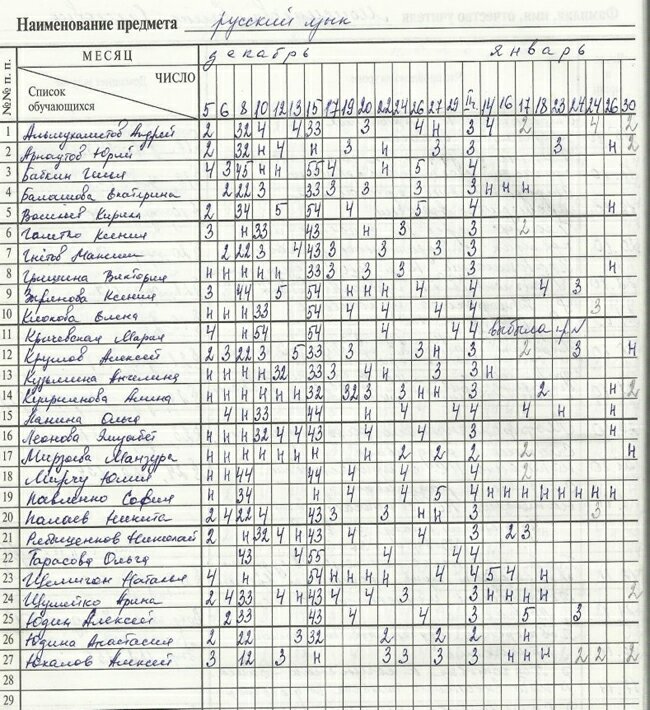 Наименование предмета русский язык
№№ п. п.
МЕСЯЦ декабрь январь
ЧИСЛО
Список обучающихся
5 6 8 10 12 13 15 17 19 20 22 24 26 27 29 14 16 17 18 23 24 24 26 30
1 Андрей 2 32 4 4 33 3 4 н 3 4 2 4 2
2 Арнаутов Юрий 2 32 н 4 н 3 н 3 3 3 н 2
3 Бабкин Илья 4 3 45 н н 55 4 н 5 4
4 Балашова Екатерина 2 22 3 33 3 3 3 3 4 3 н н н
5 Васильев Кирилл 2 34 5 54 4 5 4 н
6 Ксения 3 н 33 43 н 3 3 2
7 Максим 2 22 3 4 43 3 3 3 3
8 Гришина Виктория н н н н н 33 3 3 3 3 н
9 Зырянова Ксения 3 44 5 54 н н н 4 4 4 3
10 Елена н н н 33 54 4 4 4 4 3
11 Кричевская Мария 4 н 54 54 4 4 4 выбыла
12 Круглов Алексей 2 3 22 3 5 33 3 3 н 3 2 3 н
13 Кузьмина Ангелина н н н н 32 33 3 4 н 3 3 н
14 Амина н н н н н н 32 32 3 3 н н 3 2 н 2
15 Панина Ольга 4 н 33 44 н 4 4 4 4 н н
16 Леонова Элизабет н н н 32 4 4 43 4 4 3 н
17 Мирзоева Манзура н н н н н н н н 2 2 2 2 н
18 Юлия н н 44 44 4 4 4 2
19 Павленко София н 34 н 4 4 5 4 н н н н н н н н
20 Палаев Никита 2 4 22 4 43 3 3 н н 3 3
21 Николай 2 н 32 4 н 43 4 4 3 2 3
22 Тарасова Ольга 43 4 55 4 4 4
23 Наталья 4 н 54 н н н н 4 4 5 4 н
24 Шулейко Арина 2 4 33 4 н 43 4 4 3 3 н н н н 2
25 Юдин Алексей 2 33 43 4 4 3 5 3
26 Юдина Анастасия 2 22 3 32 2 2 2 н
27 Алексей 3 12 3 н 3 3 3 3 н н н 2 2 2
28
29